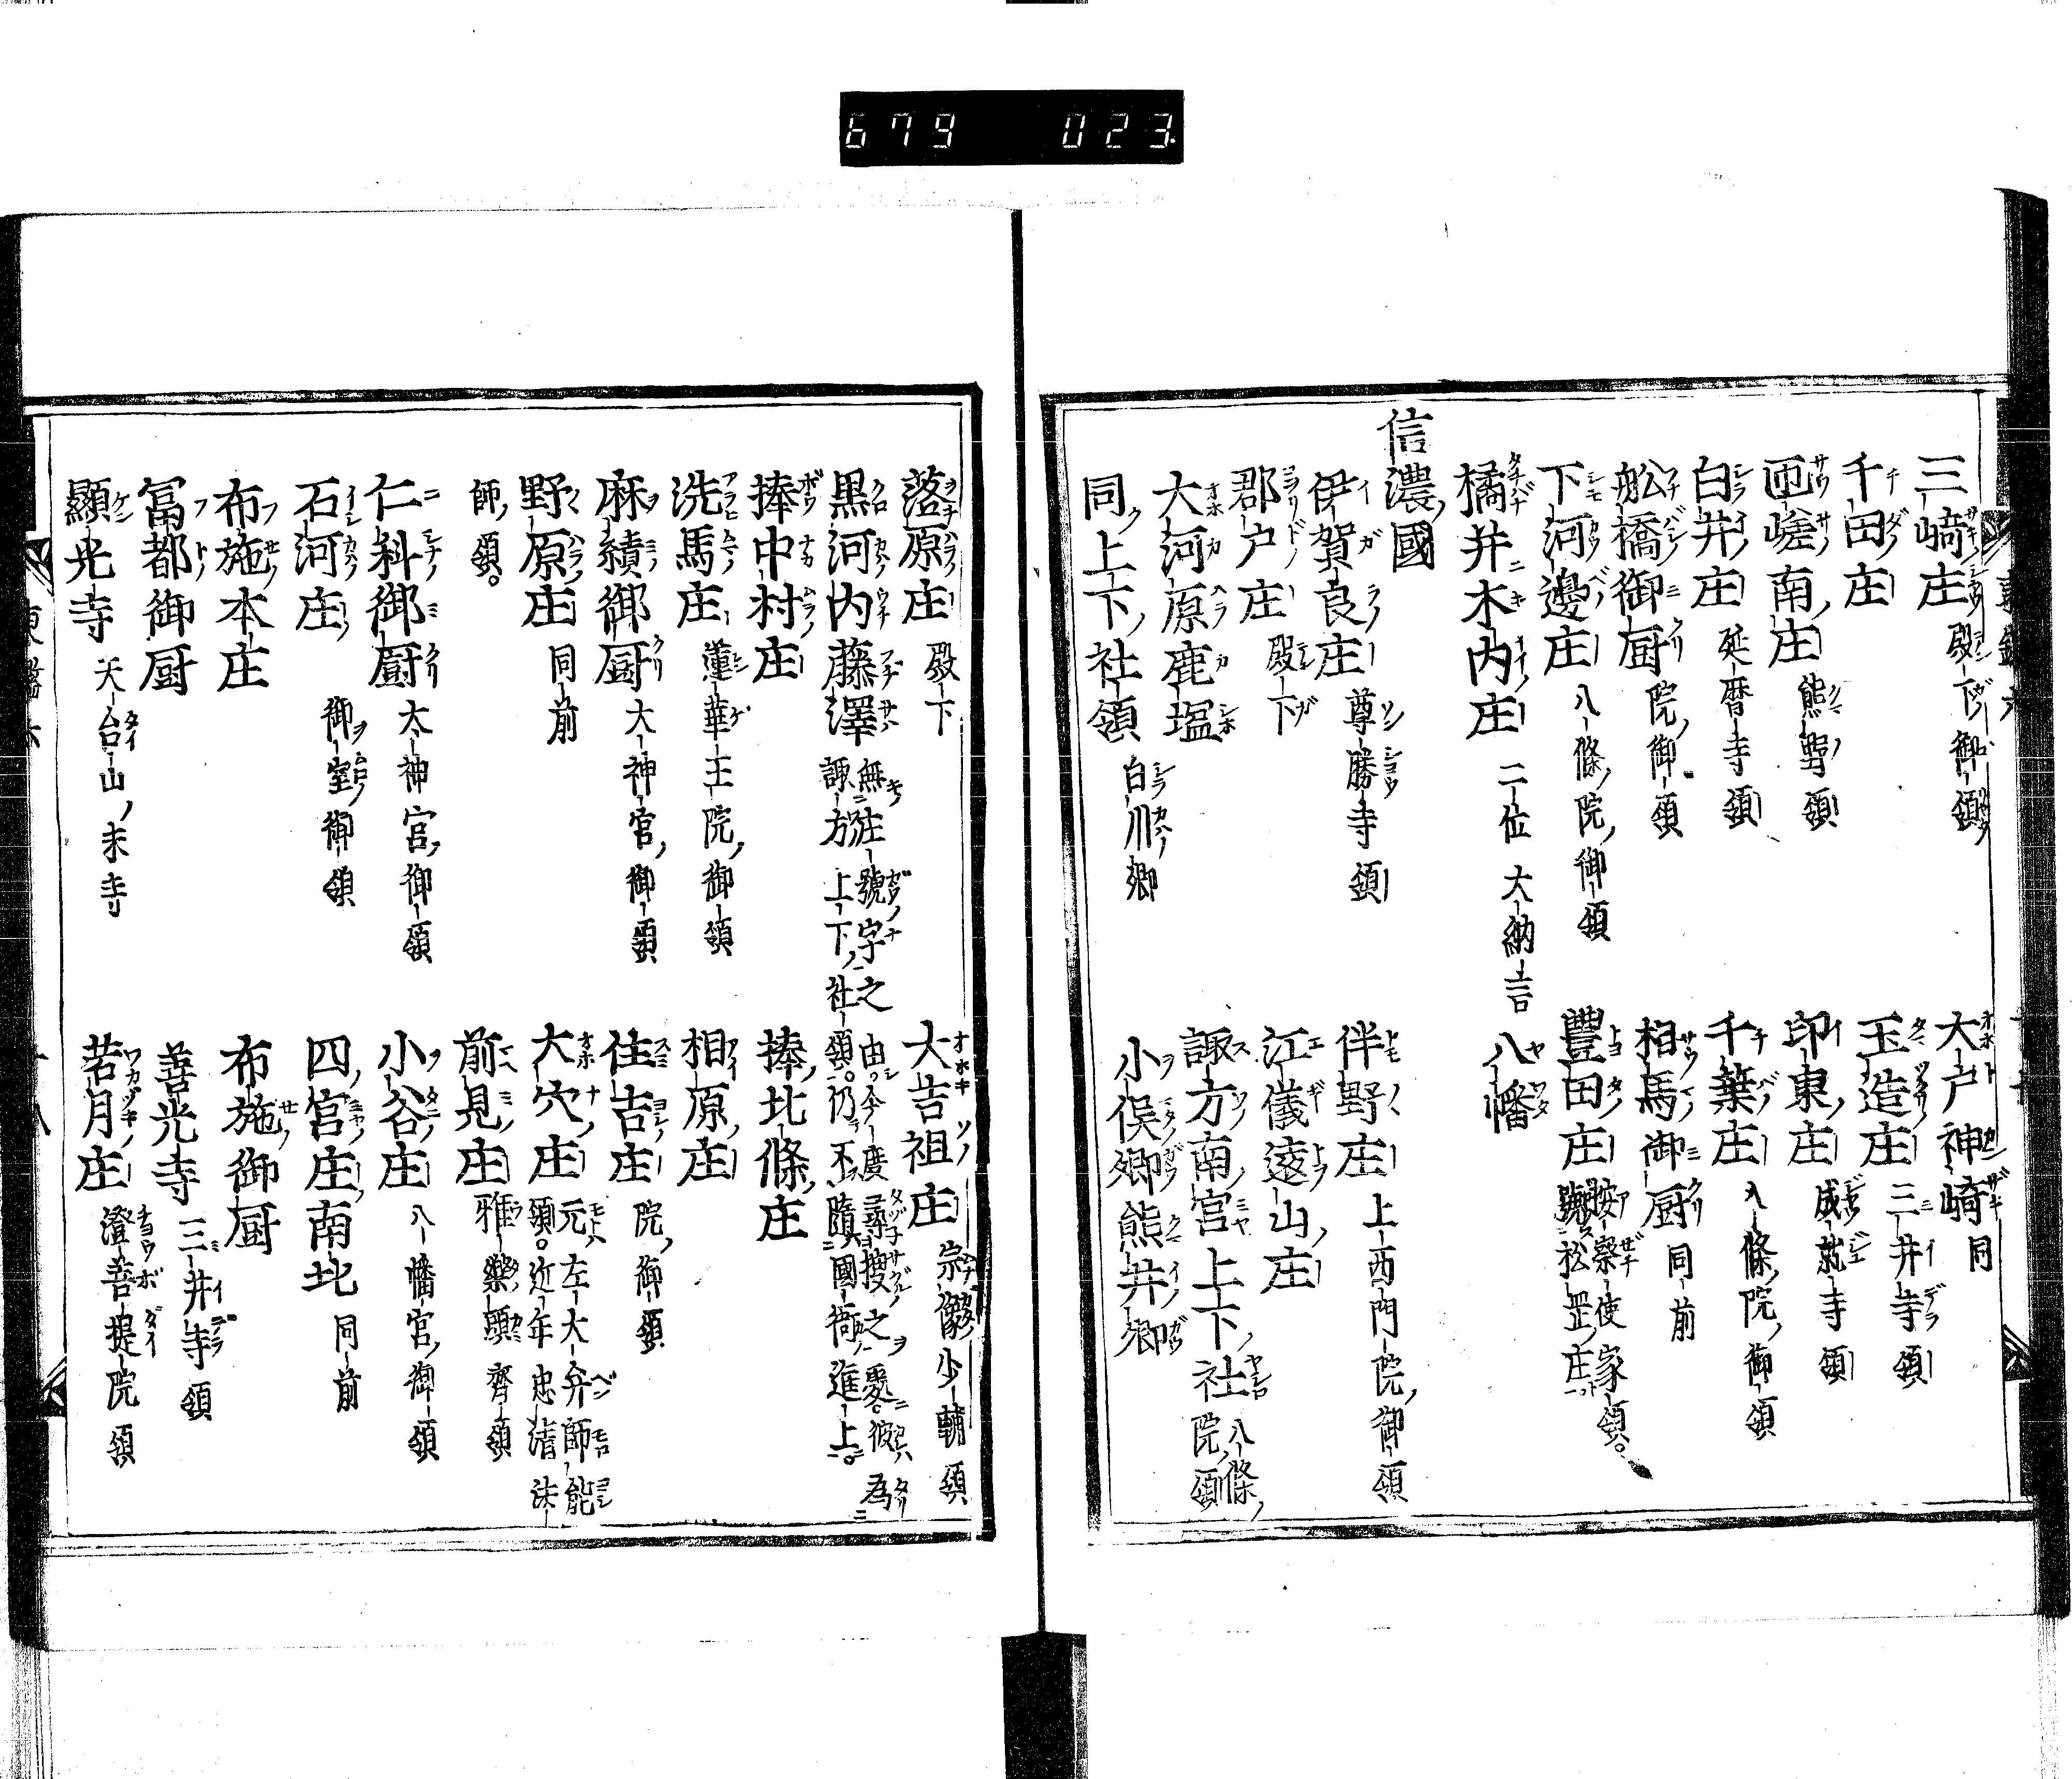 679 023
三崎庄 殿下御領 大戸神崎 同
千田庄 玉造庄 三井寺領
匝嵯南庄 熊野領 印東庄 成就寺領
白井庄 延暦寺領 千葉庄 八條院御領
舩橋御厨 院御領 相馬御厨 同前
下河邊庄 八條院御領 豐田庄 按察使家領。號松岡庄
橘并木内庄 二位大納言 八幡
信濃國
伊賀良庄 尊勝寺領 伴野庄 上西門院御領
郡戸庄 殿下 江儀遠山庄
大河原鹿塩 諏方南宮上下社 八條院領
同上下社領 白川郷 小俣郷熊井郷
落原庄 殿下 大吉祖庄 宗像少輔領
黒河内藤澤 無注號字之由。今度尋捜之處。彼為諏方上下社領。仍不隨國衙進上。
捧中村庄 捧北條庄
洗馬庄 蓮華王院御領 相原庄
麻績御厨 大神宮御領 住吉庄 院御領
野原庄 同前 大穴庄 元左大弁師能領。近年忠清法
師領。 前見庄 雅樂頭濟領
仁科御厨 太神宮御領 小谷庄 八幡宮御領
石河庄 御室御領 四宮庄南北 同前
布施本庄 布施御厨
冨都御厨 善光寺 三井寺領
顯光寺 天台山末寺 若月庄 澄菩提院領